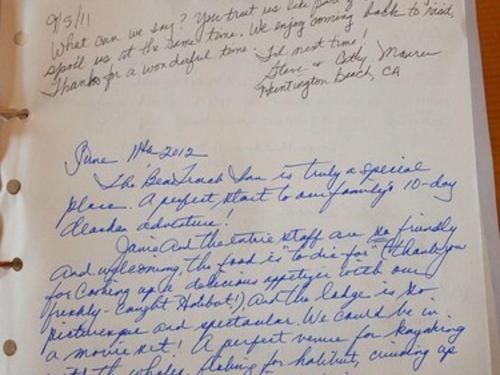 9/5/11
What can we say? You treat us like
spoil us at the same time. We enjoy coming back to visit,
Thanks for a wonderful time. Til next time!
Steve & Cathy Maurer
Huntington Beach, CA
June 11th 2012
The Bear Track Inn is truly a special
place. A perfect start to our family's 10-day
Alaskan adventure!
Janie And the entire staff are so friendly
And welcoming, the food is "to die for" (thank you
for cooking up a delicious appetizer with our
freshly-caught Halibut!) And the lodge is so
picturesque and spectacular. We could be in
a movie set! A perfect venue for kayaking
with the whales, fishing for halibut, up